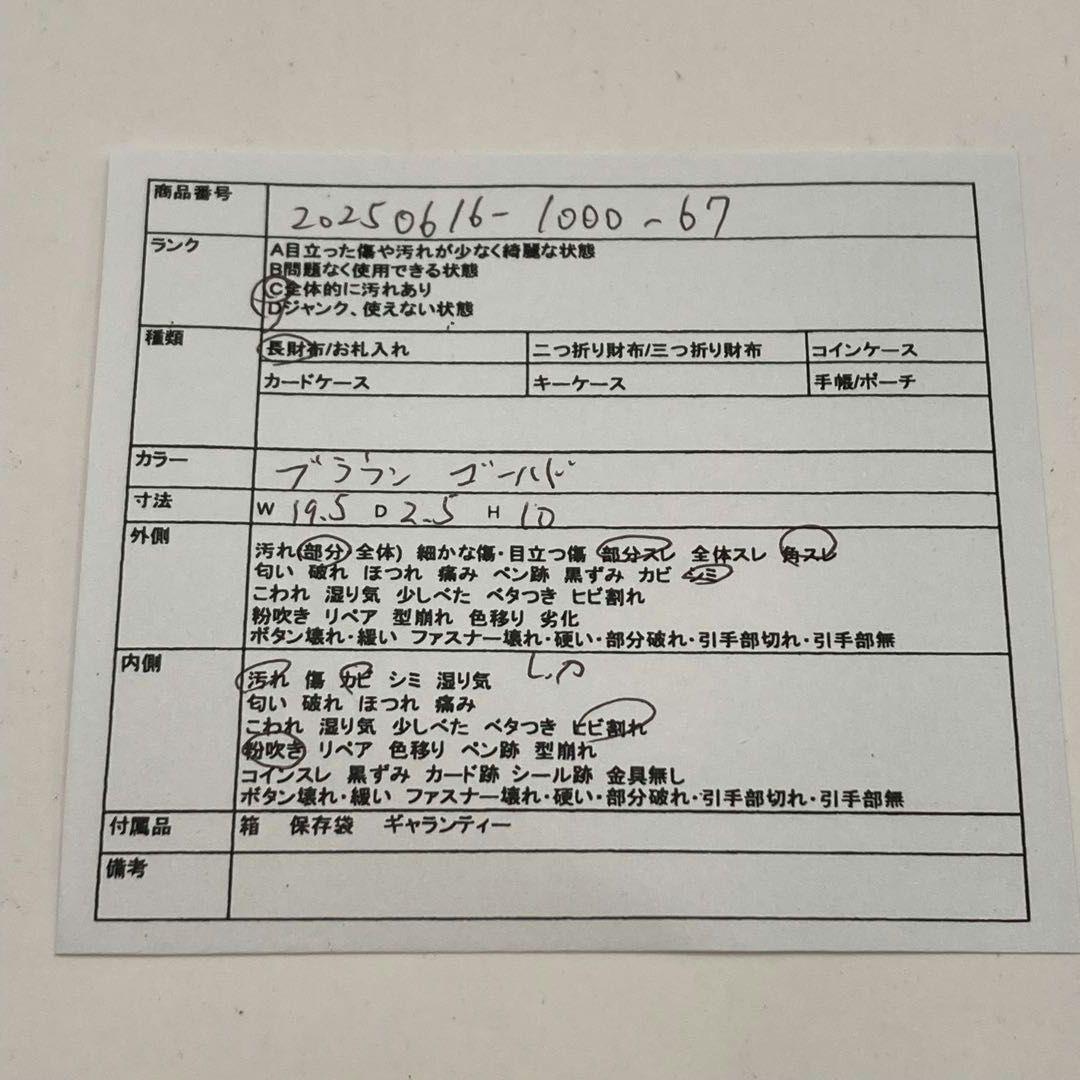 商品番号 20250616-1000-67
ランク
A目立った傷や汚れが少なく綺麗な状態
B問題なく使用できる状態
C全体的に汚れあり
Dジャンク、使えない状態
種類 長財布/お札入れ 二つ折り財布/三つ折り財布 コインケース
カードケース キーケース 手帳/ポーチ
カラー ブラウン ゴールド
寸法 W 19.5 D 2.5 H 10
外側
汚れ(部分 全体) 細かな傷・目立つ傷 部分スレ 全体スレ 角スレ
匂い 破れ ほつれ 痛み ペン跡 黒ずみ カビ シミ
こわれ 湿り気 少しべた ベタつき ヒビ割れ
粉吹き リペア 型崩れ 色移り 劣化
ボタン壊れ・緩い ファスナー壊れ・硬い・部分破れ・引手部切れ・引手部無
内側
汚れ 傷 カビ シミ 湿り気
匂い 破れ ほつれ 痛み
こわれ 湿り気 少しべた ベタつき ヒビ割れ
粉吹き リペア 色移り ペン跡 型崩れ
コインスレ 黒ずみ カード跡 シール跡 金具無し
ボタン壊れ・緩い ファスナー壊れ・硬い・部分破れ・引手部切れ・引手部無
付属品 箱 保存袋 ギャランティー
備考